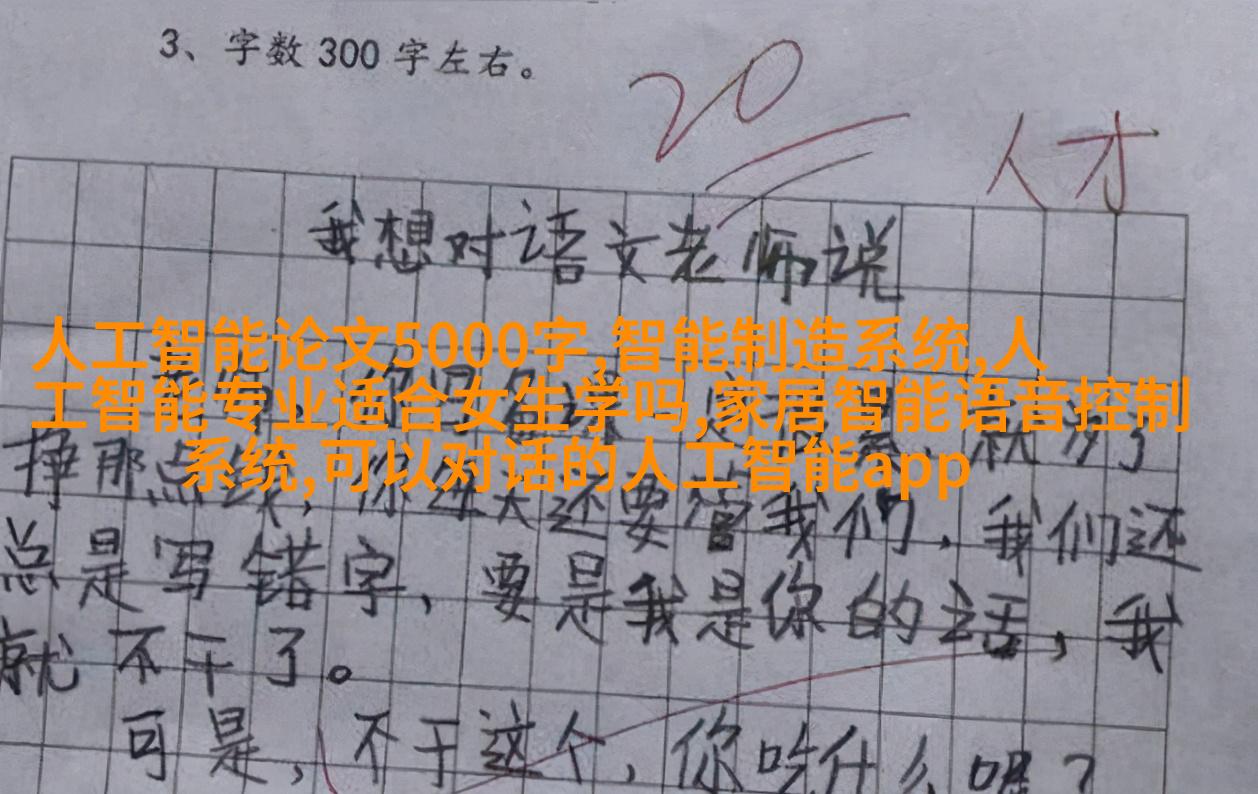 3、字数 300 字左右。
20
人才
我想对语文老师说
人工智能论文5000字,智能制造系统,人
工智能专业适合女生学吗,家居智能语音控制
系统,可以对话的人工智能app
挣那点
还要管我们，我们还
总是写错字，要是我是你的话，我
就不干了。
可是，不干这个，你吃什么呢？